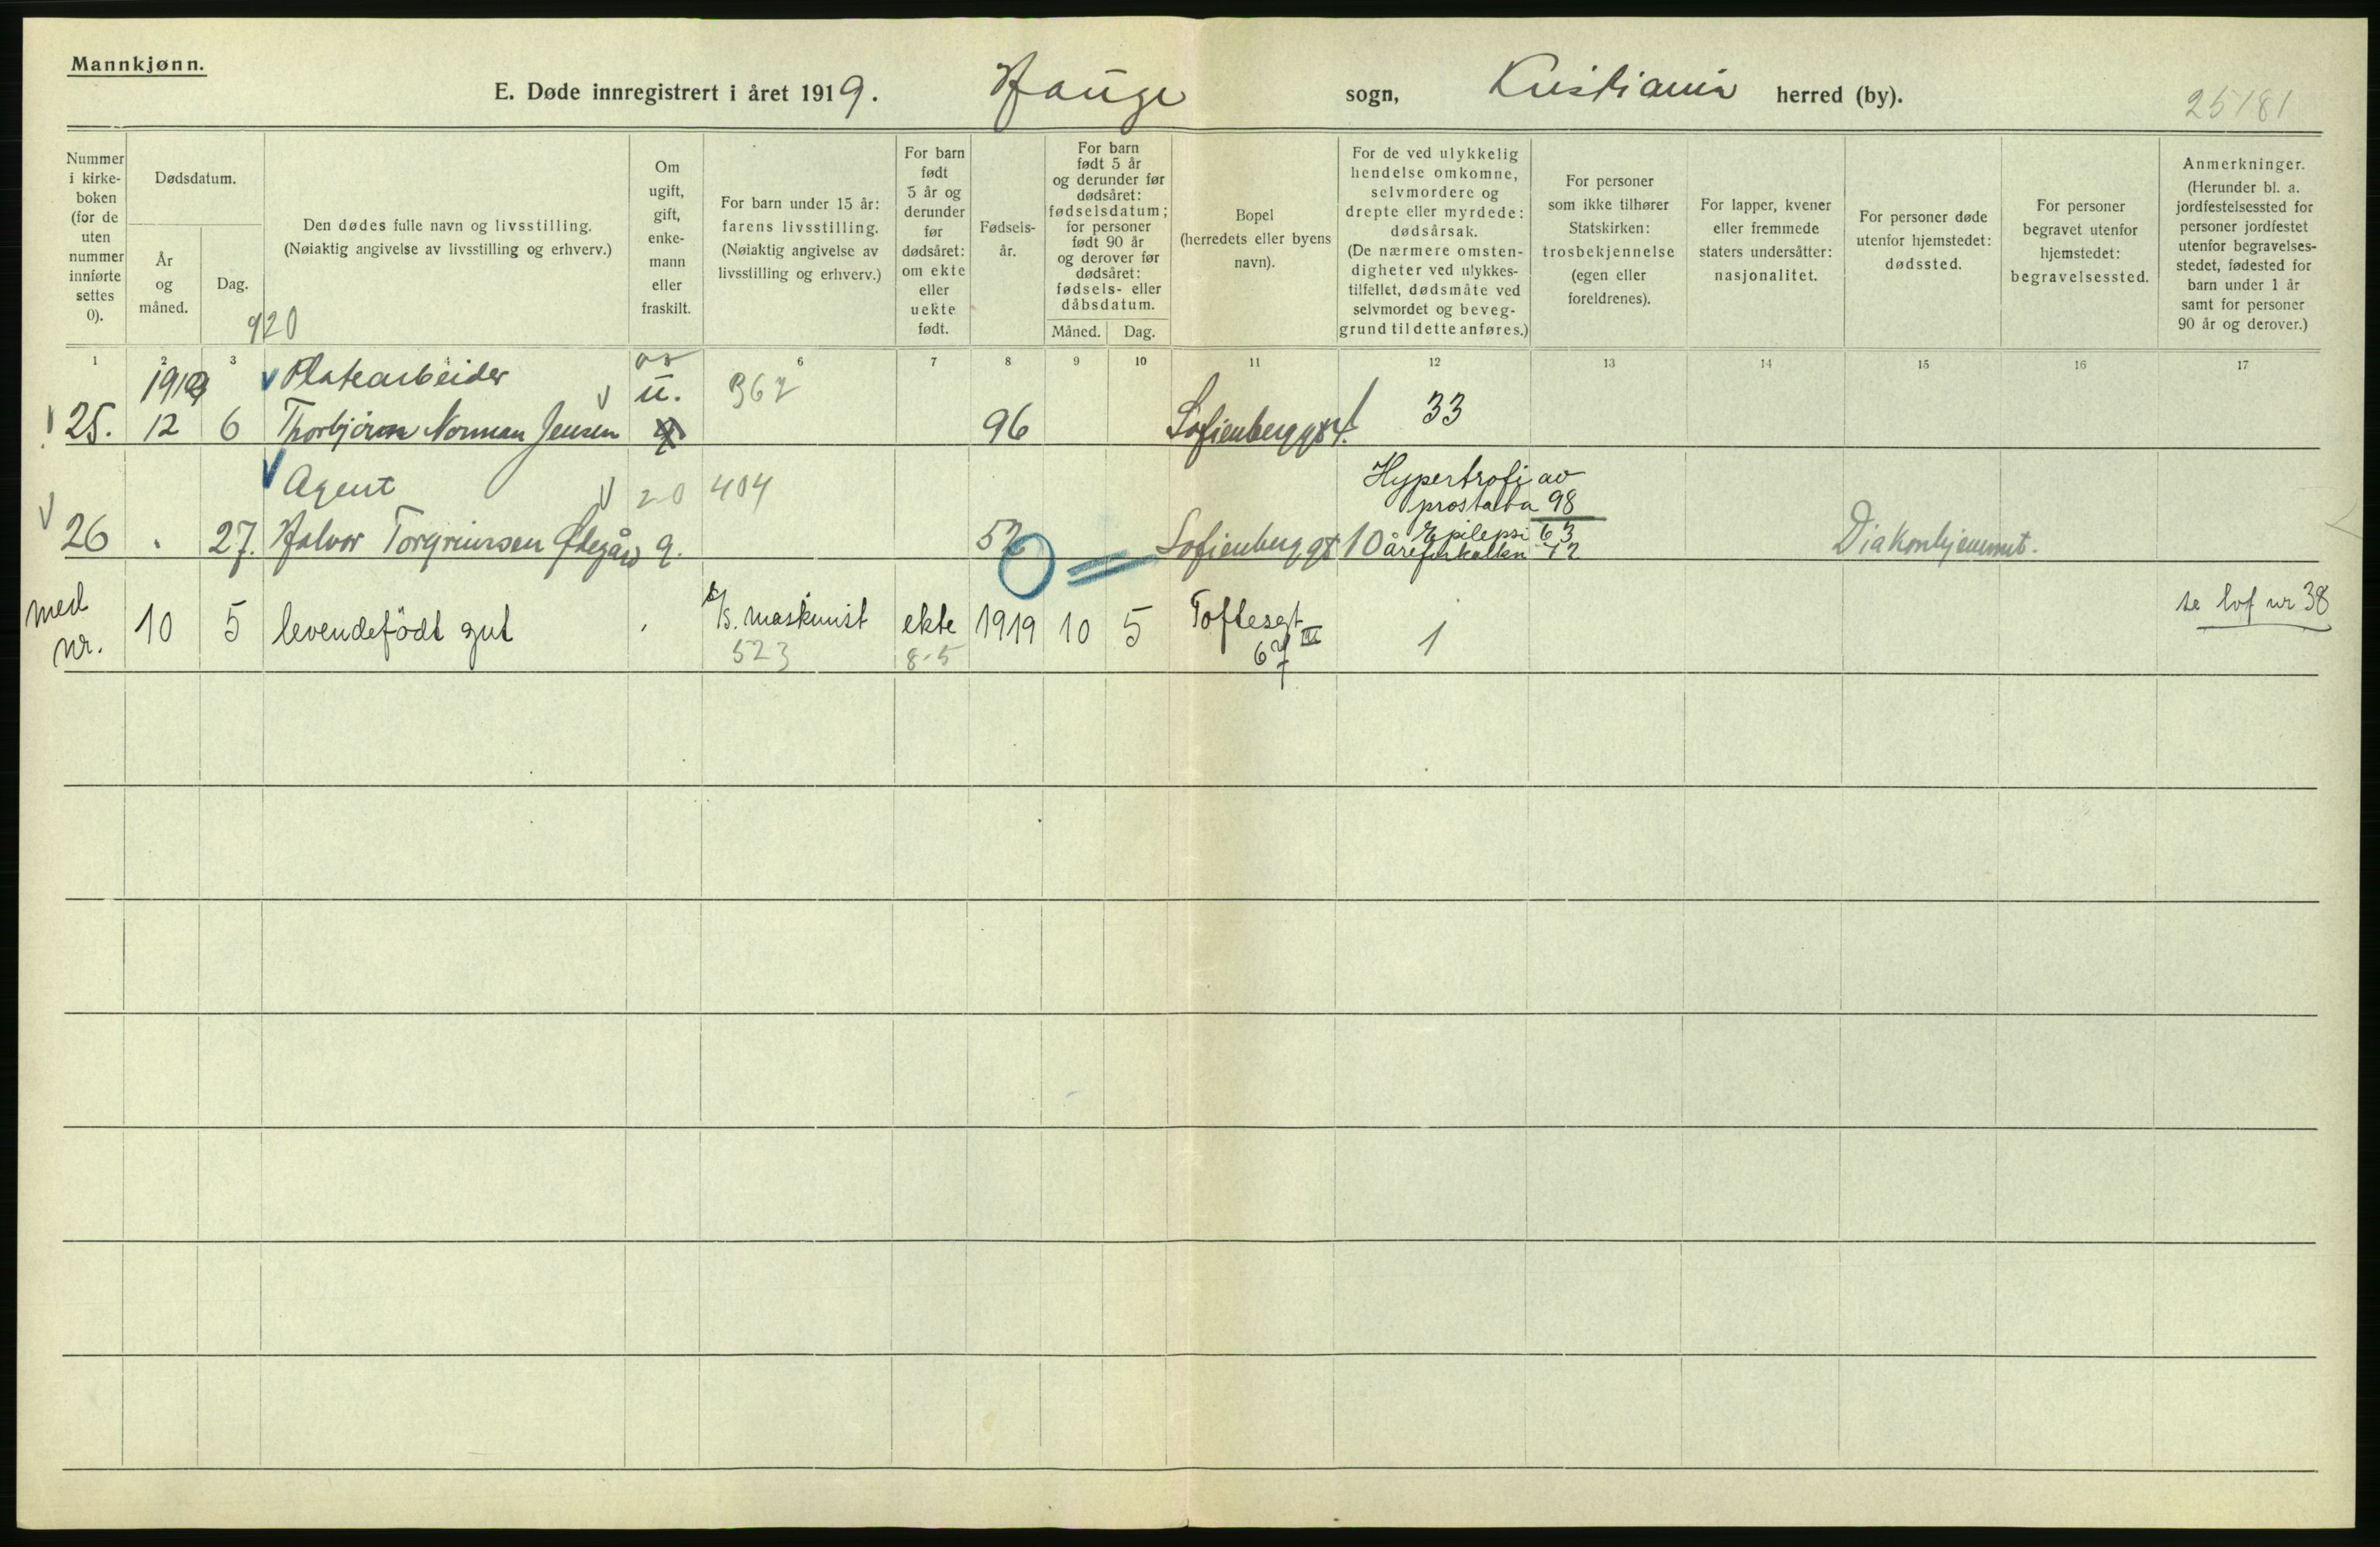 Mannkjønn.
E. Døde innregistrert i året 1919. Hauge sogn, Kristiania herred (by).
25181
Nummer i kirke-boken (for de uten nummer innførte settes 0).
Dødsdatum.
År og måned.
Dag.
Den dødes fulle navn og livsstilling. (Nøiaktig angivelse av livsstilling og erhverv.)
Om ugift, gift, enke-mann eller fraskilt.
For barn under 15 år: farens livsstilling. (Nøiaktig angivelse av livsstilling og erhverv.)
For barn født 5 år og derunder før dødsåret: om ekte eller uekte født.
Fødsels-år.
For barn født 5 år og derunder før dødsåret: fødselsdatum; for personer født 90 år og derover før dødsåret: fødsels- eller dåbsdatum.
Måned. Dag.
Bopel (herredets eller byens navn).
For de ved ulykkelig hendelse omkomne, selvmordere og drepte eller myrdede: dødsårsak. (De nærmere omsten-digheter ved ulykkes-tilfellet, dødsmåte ved selvmordet og beveg-grund til dette anføres.)
For personer som ikke tilhører Statskirken: trosbekjennelse (egen eller foreldrenes).
For lapper, kvener eller fremmede staters undersåtter: nasjonalitet.
For personer døde utenfor hjemstedet: dødssted.
For personer begravet utenfor hjemstedet: begravelsessted.
Anmerkninger. (Herunder bl. a. jordfestelsessted for personer jordfestet utenfor begravelses-stedet, fødested for barn under 1 år samt for personer 90 år og derover.)
920
1 2 3 6 7 8 9 10 11 12 13 14 15 16 17
1919 Platearbeider u. 362
25. 12 6 Thorbjørn Norman Jensen 96 Sofienberggt 33
Agent 20 404 Hypertrofi av
prostata 98
26 . 27. Halvor Torgrimsen Ødegård g. 52 Sofienberggt 10 Epilepsi 63
åreforkalkn 72 Diakonhjemmet.
med
nr. 10 5 levendefödt gut maskinist ekte 1919 10 5 Toftesgt 67 III 1 se lvf nr 38
523 8-5